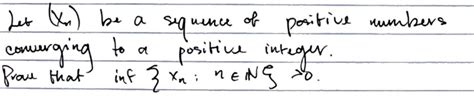 Let (Xn) be a sequence of positive numbers
converging to a positive integer.
Prove that inf { xn : n ∈ IN } >0.